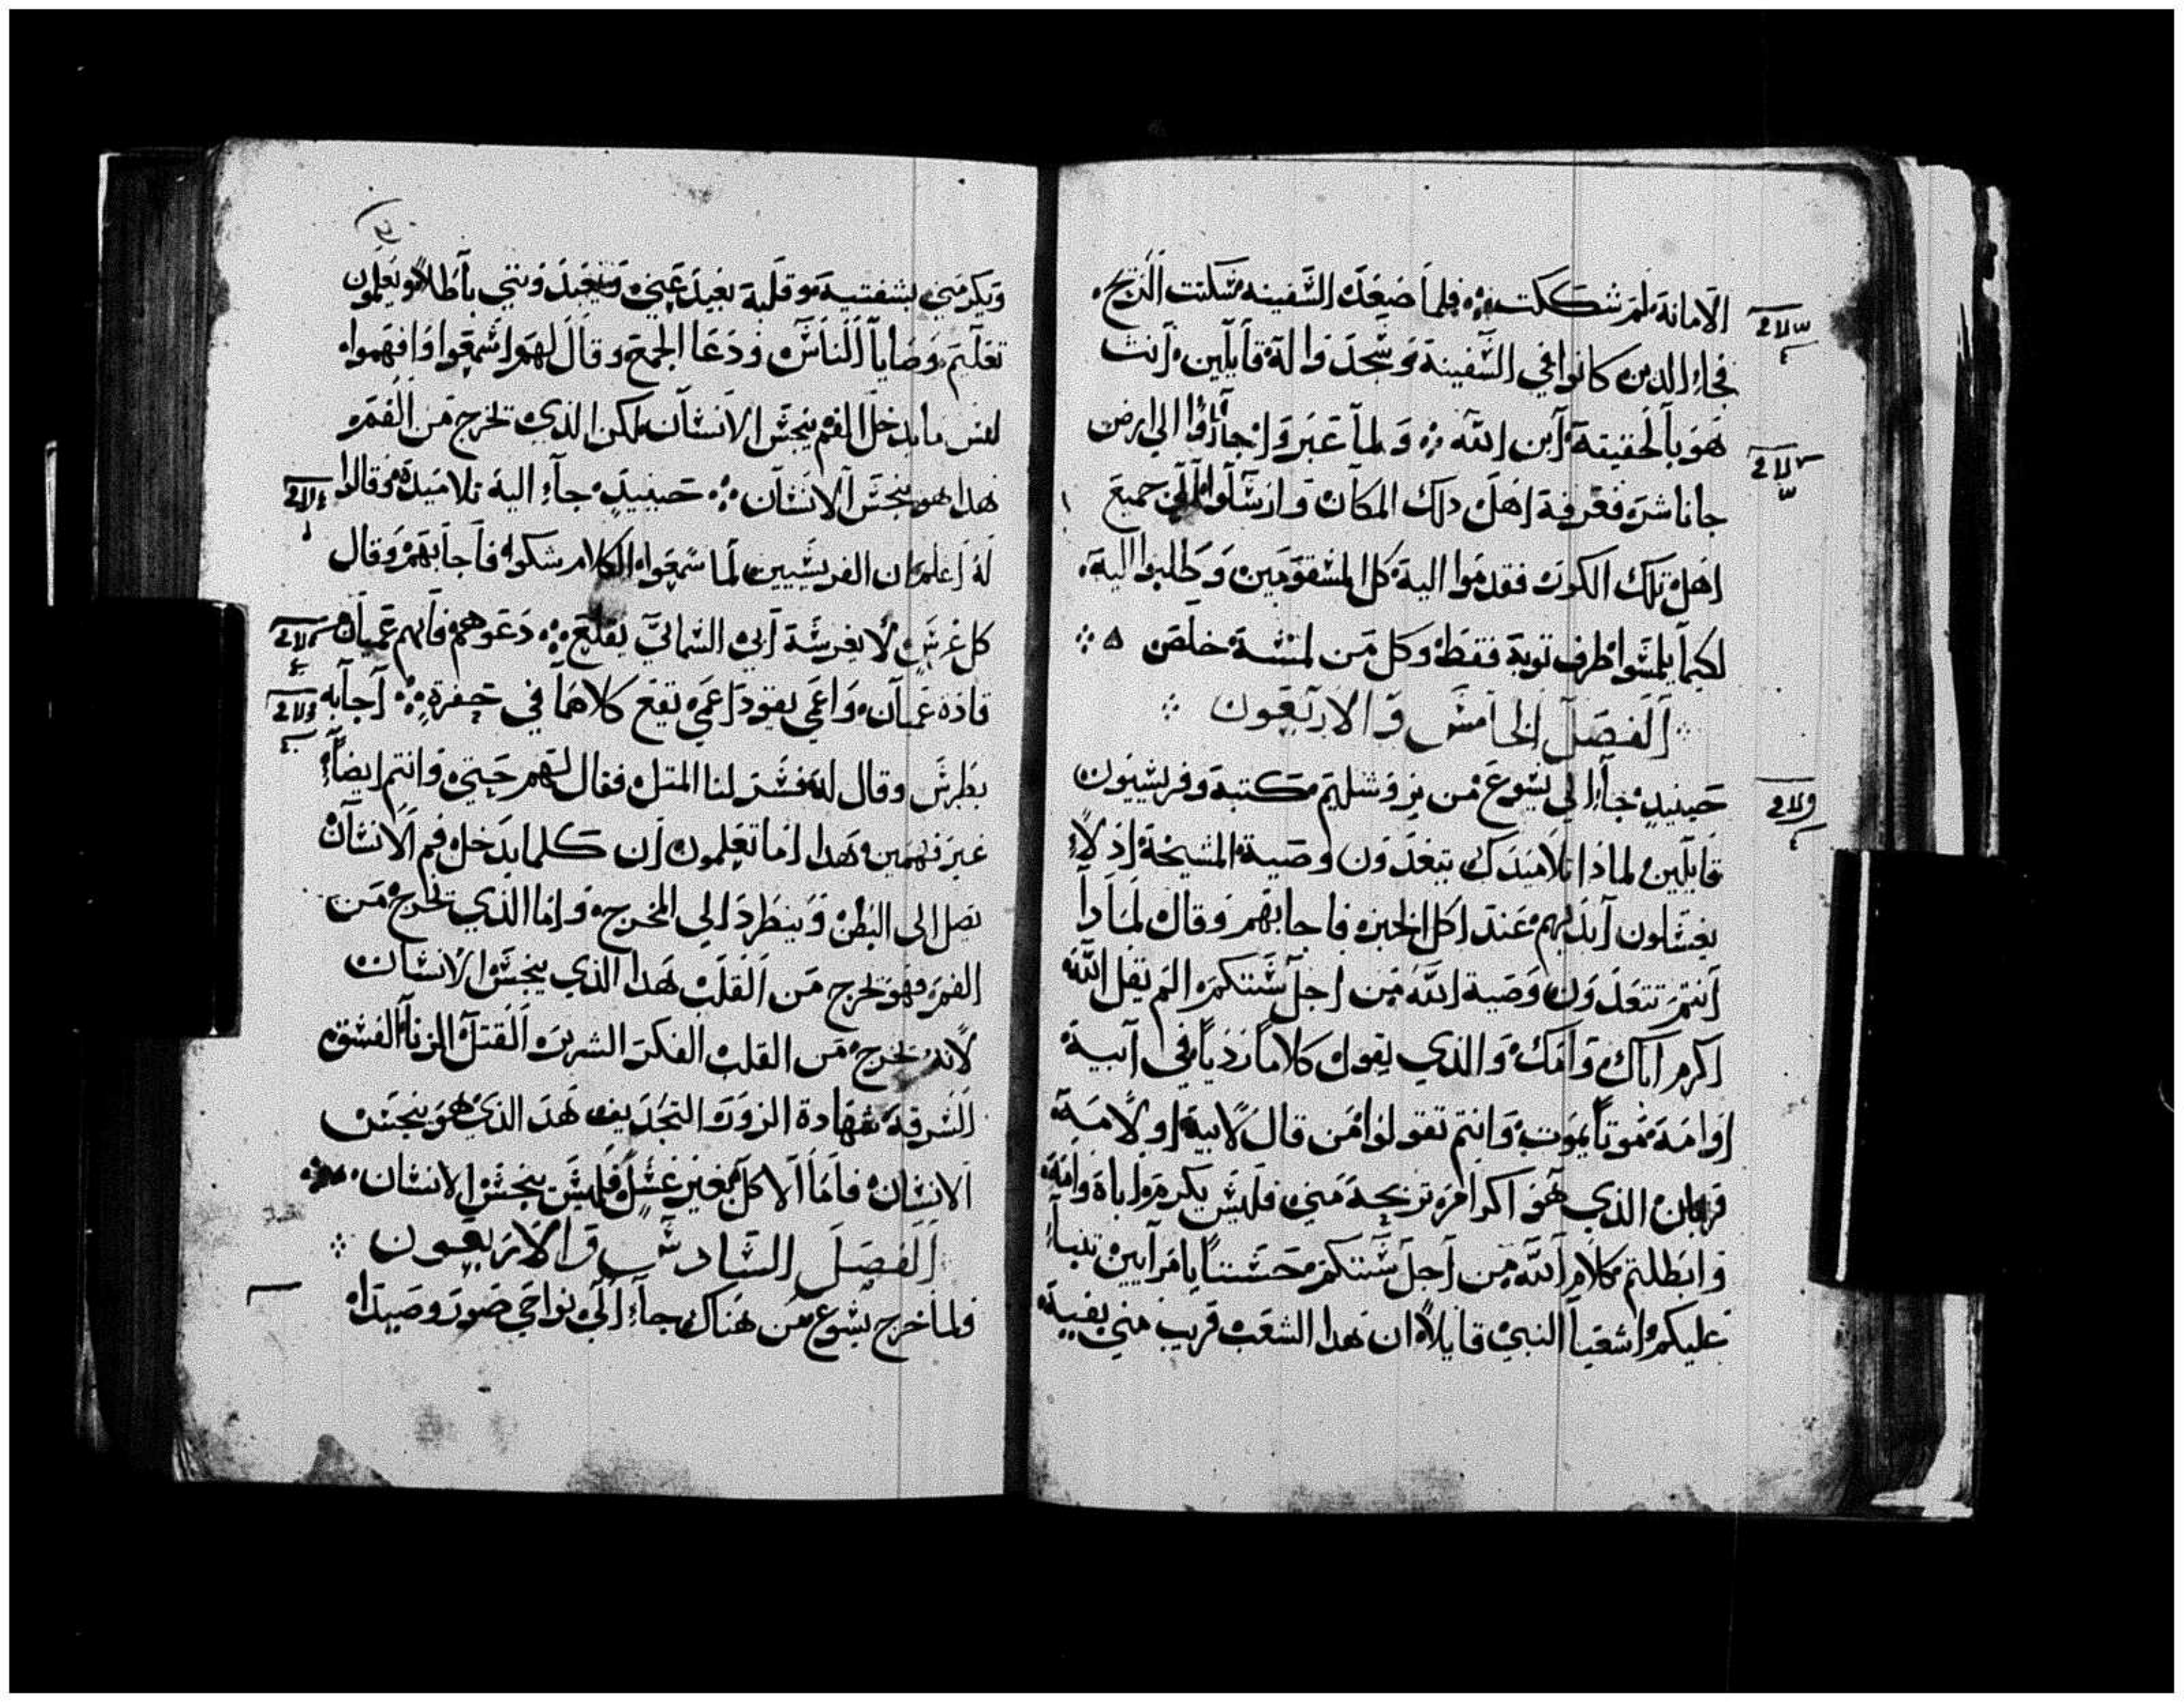 الامانة لمر شككت فلما صعد السفينه سكنت الريح
فجاء الدين كانوا في السفينة وسجدوا لة قايلين انت
هو بالحقيقة ابن الله ولما عبروا جاؤا الي ارض
جاناشر فعرفة اهل دلك المكان وارسلوا الي جميع
اهل تلك الكور فقدموا الية كل المسقومين وطلبوا الية
لكيما يلمسوا طرف توبة فقط وكل من لمسة خلص
الفصل الخامس والاربعون
حينيد جاء الي يسوع من يروشليم كتبة وفريسيون
قايلين لمادا تلاميدك يتعدون وصية المشيخة اد لا
يغسلون ايديهم عند اكل الخبز فاجابهم وقال لمادا
انتم تتعدون وصية الله من اجل سنتكم الم يقل الله
اكرم اباك وامك والذي يقول كلاما رديا في ابية
او امة موتا يموت وانتم تقولوا من قال لابية او لامة
قربان الذي هو اكرامر تربحة مني فليس يكرم اباة وامة
وابطلتم كلام الله من اجل سنتكم حسنا يا مرايين تنبا
عليكم اشعيا النبي قايلا ان هدا الشعب قريب مني بفية
ويكرمني بشفتية وقلبة بعيد عني ويعبدونني باطلا ويعلمون
تعليم وصايا الناس ودعا الجمع وقال لهم اسمعوا وافهموا
ليس ما يدخل الفم ينجس الانسان لكن الذي يخرج من الفم
هدا هو ينجس الانسان حينيد جاء الية تلاميدة وقالوا
لة اعلم ان الفريسيين لما سمعوا الكلام شكوا فاجابهم وقال
كل غرس لا يغرسة ابي السمائي يقلع دعوهم فانهم عميان
قادة عميان واعمي يقود اعمي يقع كلاهما في حفرة اجابه
بطرس وقال لة فسر لنا المتل فقال لهم حتي وانتم ايضا
غير فهمين هدا اما تعلمون ان كلما يدخل فم الانسان
يصل الى البطن وينطرد الي المخرج واما الذي يخرج من
الفم فهو يخرج من القلب هدا الذي ينجس الانسان
لانه يخرج من القلب الفكر الشرير القتل الزنا الفسق
السرقة شهادة الزور التجديف هد الذي هو ينجس
الانسان فاما الاكل بغير غسل فليس ينجس الانسان
الفصل السادس والاربعون
فلما خرج يسوع من هناك جاء الي نواحي صور وصيدا